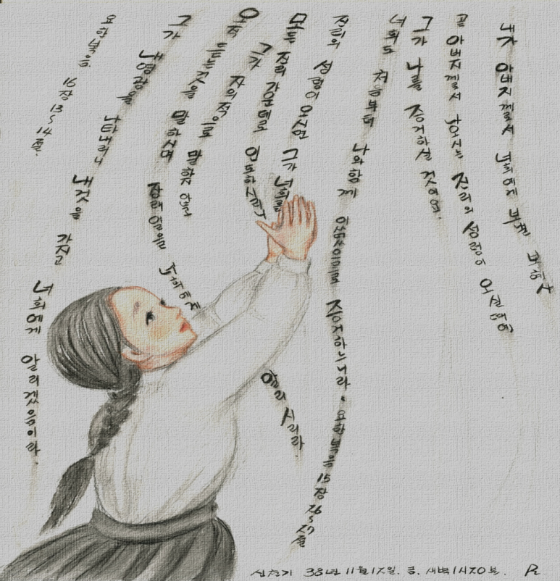 내가 아버지께로서 너희에게 보낼 보혜사
곧 아버지께로서 나오시는 진리의 성령이 오실 때에
그가 나를 증거하실 것이요.
너희도 처음부터 나와 함께 있었으므로 증거하느니라. 요한복음 15장 26~27절
진리의 성령이 오시면 그가 너희를
모든 진리 가운데로 인도하시리니
그가 자의적으로 말하지 않고
오직 듣는 것을 말하시며 장래 일을 너희에게 알리시리라.
그가 내 영광을 나타내리니 내 것을 가지고 너희에게 알리겠음이라.
요한복음 16장 13~14절.
38년 11월 17일. 금. 새벽 1시 20분.